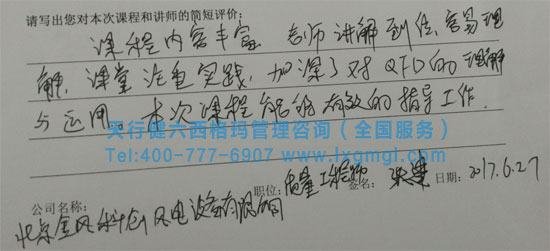 请写出您对本次课程和讲师的简短评价:
课程内容丰富 老师讲解到位、容易理
解,课堂注重实践,加深了对QFD的理解
与运用 本次课程能够有效的指导工作.
天行健六西格玛管理咨询(全国服务)
Tel:400-777-6907 www.lxgmgl.com
职位:质量工程师 签名: 日期:2017.6.27
公司名称:北京金风科创风电设备有限公司